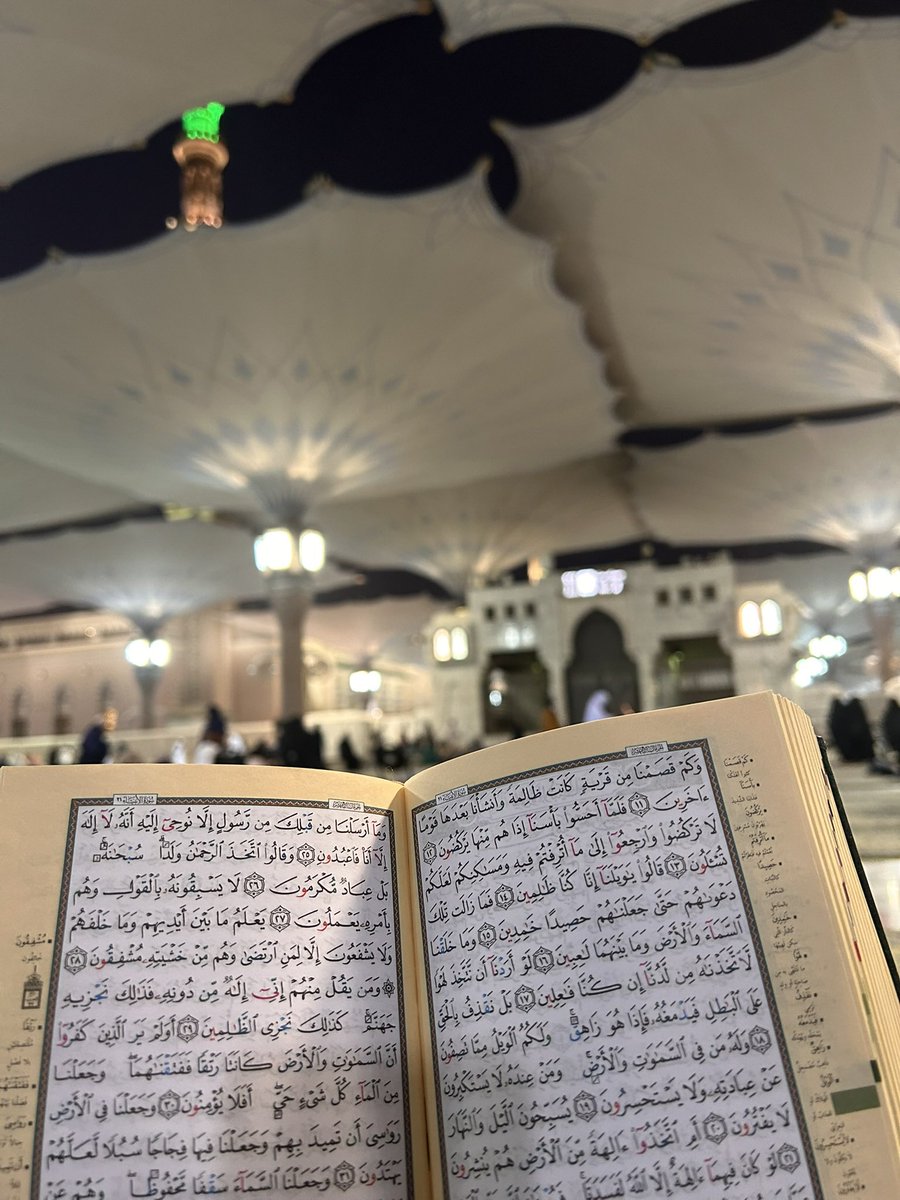 وَكَمْ قَصَمْنَا مِن قَرْيَةٍ كَانَتْ ظَالِمَةً وَأَنشَأْنَا بَعْدَهَا قَوْمًا
ءَاخَرِينَ ١١ فَلَمَّآ أَحَسُّوا۟ بَأْسَنَآ إِذَا هُم مِّنْهَا يَرْكُضُونَ ١٢
لَا تَرْكُضُوا۟ وَٱرْجِعُوٓا۟ إِلَىٰ مَآ أُتْرِفْتُمْ فِيهِ وَمَسَٰكِنِكُمْ لَعَلَّكُمْ
تُسْـَٔلُونَ ١٣ قَالُوا۟ يَٰوَيْلَنَآ إِنَّا كُنَّا ظَٰلِمِينَ ١٤ فَمَا زَالَت تِّلْكَ
دَعْوَىٰهُمْ حَتَّىٰ جَعَلْنَٰهُمْ حَصِيدًا خَٰمِدِينَ ١٥ وَمَا خَلَقْنَا
ٱلسَّمَآءَ وَٱلْأَرْضَ وَمَا بَيْنَهُمَا لَٰعِبِينَ ١٦ لَوْ أَرَدْنَآ أَن نَّتَّخِذَ لَهْوًا
لَّٱتَّخَذْنَٰهُ مِن لَّدُنَّآ إِن كُنَّا فَٰعِلِينَ ١٧ بَلْ نَقْذِفُ بِٱلْحَقِّ
عَلَى ٱلْبَٰطِلِ فَيَدْمَغُهُۥ فَإِذَا هُوَ زَاهِقٌ ۚ وَلَكُمُ ٱلْوَيْلُ مِمَّا تَصِفُونَ
١٨ وَلَهُۥ مَن فِى ٱلسَّمَٰوَٰتِ وَٱلْأَرْضِ ۚ وَمَنْ عِندَهُۥ لَا يَسْتَكْبِرُونَ
عَنْ عِبَادَتِهِۦ وَلَا يَسْتَحْسِرُونَ ١٩ يُسَبِّحُونَ ٱلَّيْلَ وَٱلنَّهَارَ
لَا يَفْتُرُونَ ٢٠ أَمِ ٱتَّخَذُوٓا۟ ءَالِهَةً مِّنَ ٱلْأَرْضِ هُمْ يُنشِرُونَ
٢١ لَوْ كَانَ فِيهِمَآ ءَالِهَةٌ إِلَّا ٱللَّهُ لَفَسَدَتَا
وَمَآ أَرْسَلْنَا مِن قَبْلِكَ مِن رَّسُولٍ إِلَّا نُوحِىٓ إِلَيْهِ أَنَّهُۥ لَآ إِلَٰهَ
إِلَّآ أَنَا۠ فَٱعْبُدُونِ ٢٥ وَقَالُوا۟ ٱتَّخَذَ ٱلرَّحْمَٰنُ وَلَدًا ۗ سُبْحَٰنَهُۥ ۚ
بَلْ عِبَادٌ مُّكْرَمُونَ ٢٦ لَا يَسْبِقُونَهُۥ بِٱلْقَوْلِ وَهُم
بِأَمْرِهِۦ يَعْمَلُونَ ٢٧ يَعْلَمُ مَا بَيْنَ أَيْدِيهِمْ وَمَا خَلْفَهُمْ
وَلَا يَشْفَعُونَ إِلَّا لِمَنِ ٱرْتَضَىٰ وَهُم مِّنْ خَشْيَتِهِۦ مُشْفِقُونَ ٢٨
۞ وَمَن يَقُلْ مِنْهُمْ إِنِّىٓ إِلَٰهٌ مِّن دُونِهِۦ فَذَٰلِكَ نَجْزِيهِ
جَهَنَّمَ ۚ كَذَٰلِكَ نَجْزِى ٱلظَّٰلِمِينَ ٢٩ أَوَلَمْ يَرَ ٱلَّذِينَ كَفَرُوٓا۟
أَنَّ ٱلسَّمَٰوَٰتِ وَٱلْأَرْضَ كَانَتَا رَتْقًا فَفَتَقْنَٰهُمَا ۖ وَجَعَلْنَا
مِنَ ٱلْمَآءِ كُلَّ شَىْءٍ حَىٍّ ۖ أَفَلَا يُؤْمِنُونَ ٣٠ وَجَعَلْنَا فِى ٱلْأَرْضِ
رَوَٰسِىَ أَن تَمِيدَ بِهِمْ وَجَعَلْنَا فِيهَا فِجَاجًا سُبُلًا لَّعَلَّهُمْ
يَهْتَدُونَ ٣١ وَجَعَلْنَا ٱلسَّمَآءَ سَقْفًا مَّحْفُوظًا ۖ وَهُمْ عَنْ